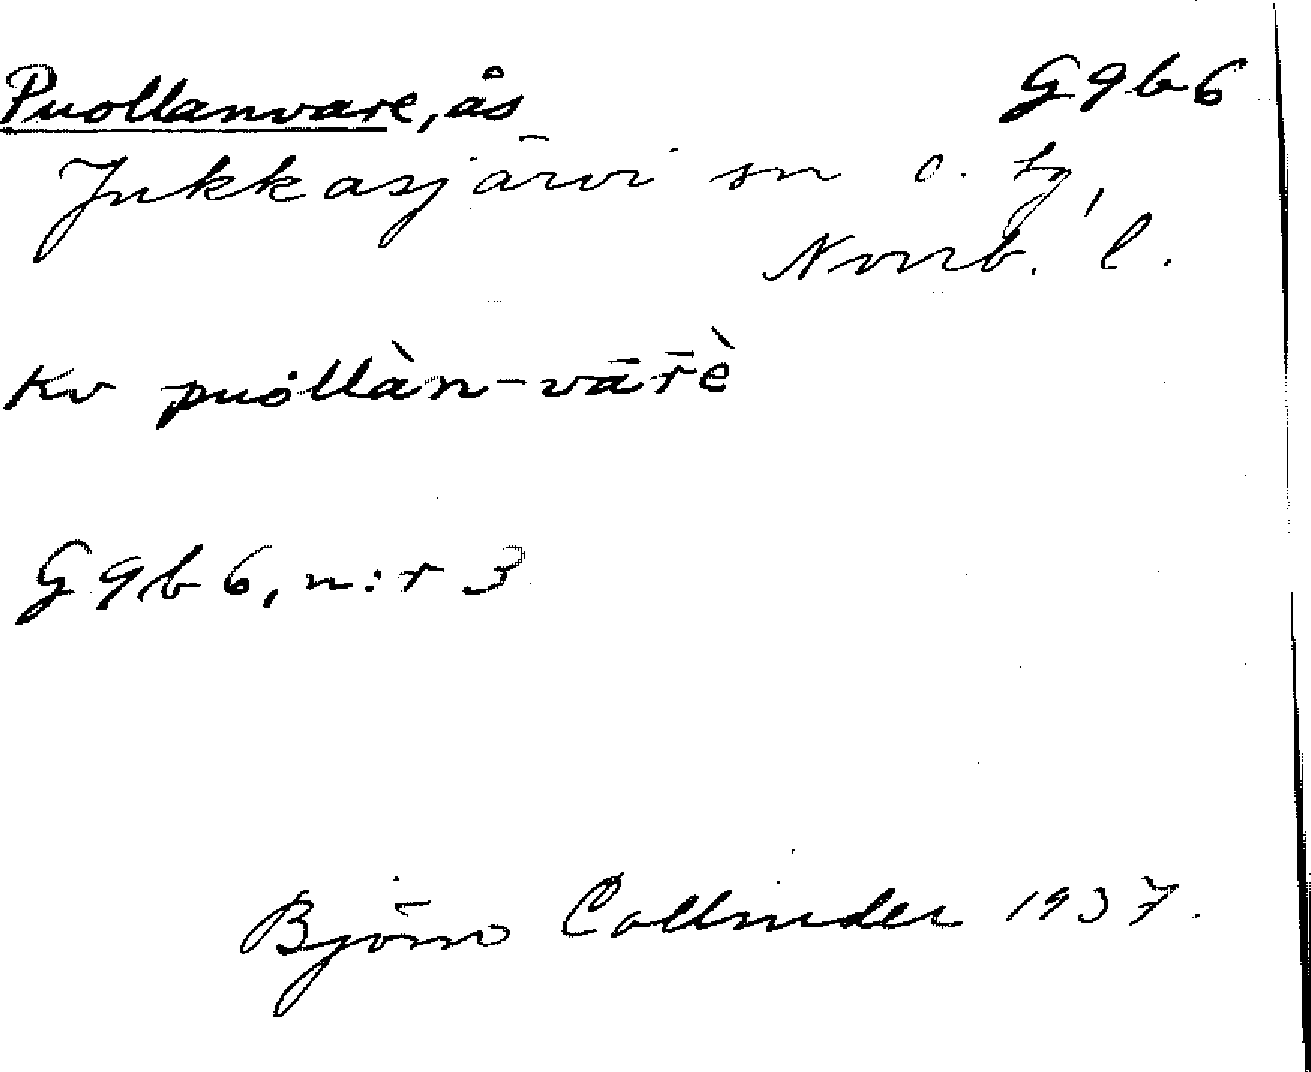 Puollanvare, ås G9b6
Jukkasjärvi sn o. tg,
Norrb. l.
Kv puȯllàn-vār̄è
G9b6, n:r 3
Björn Collinder 1937.